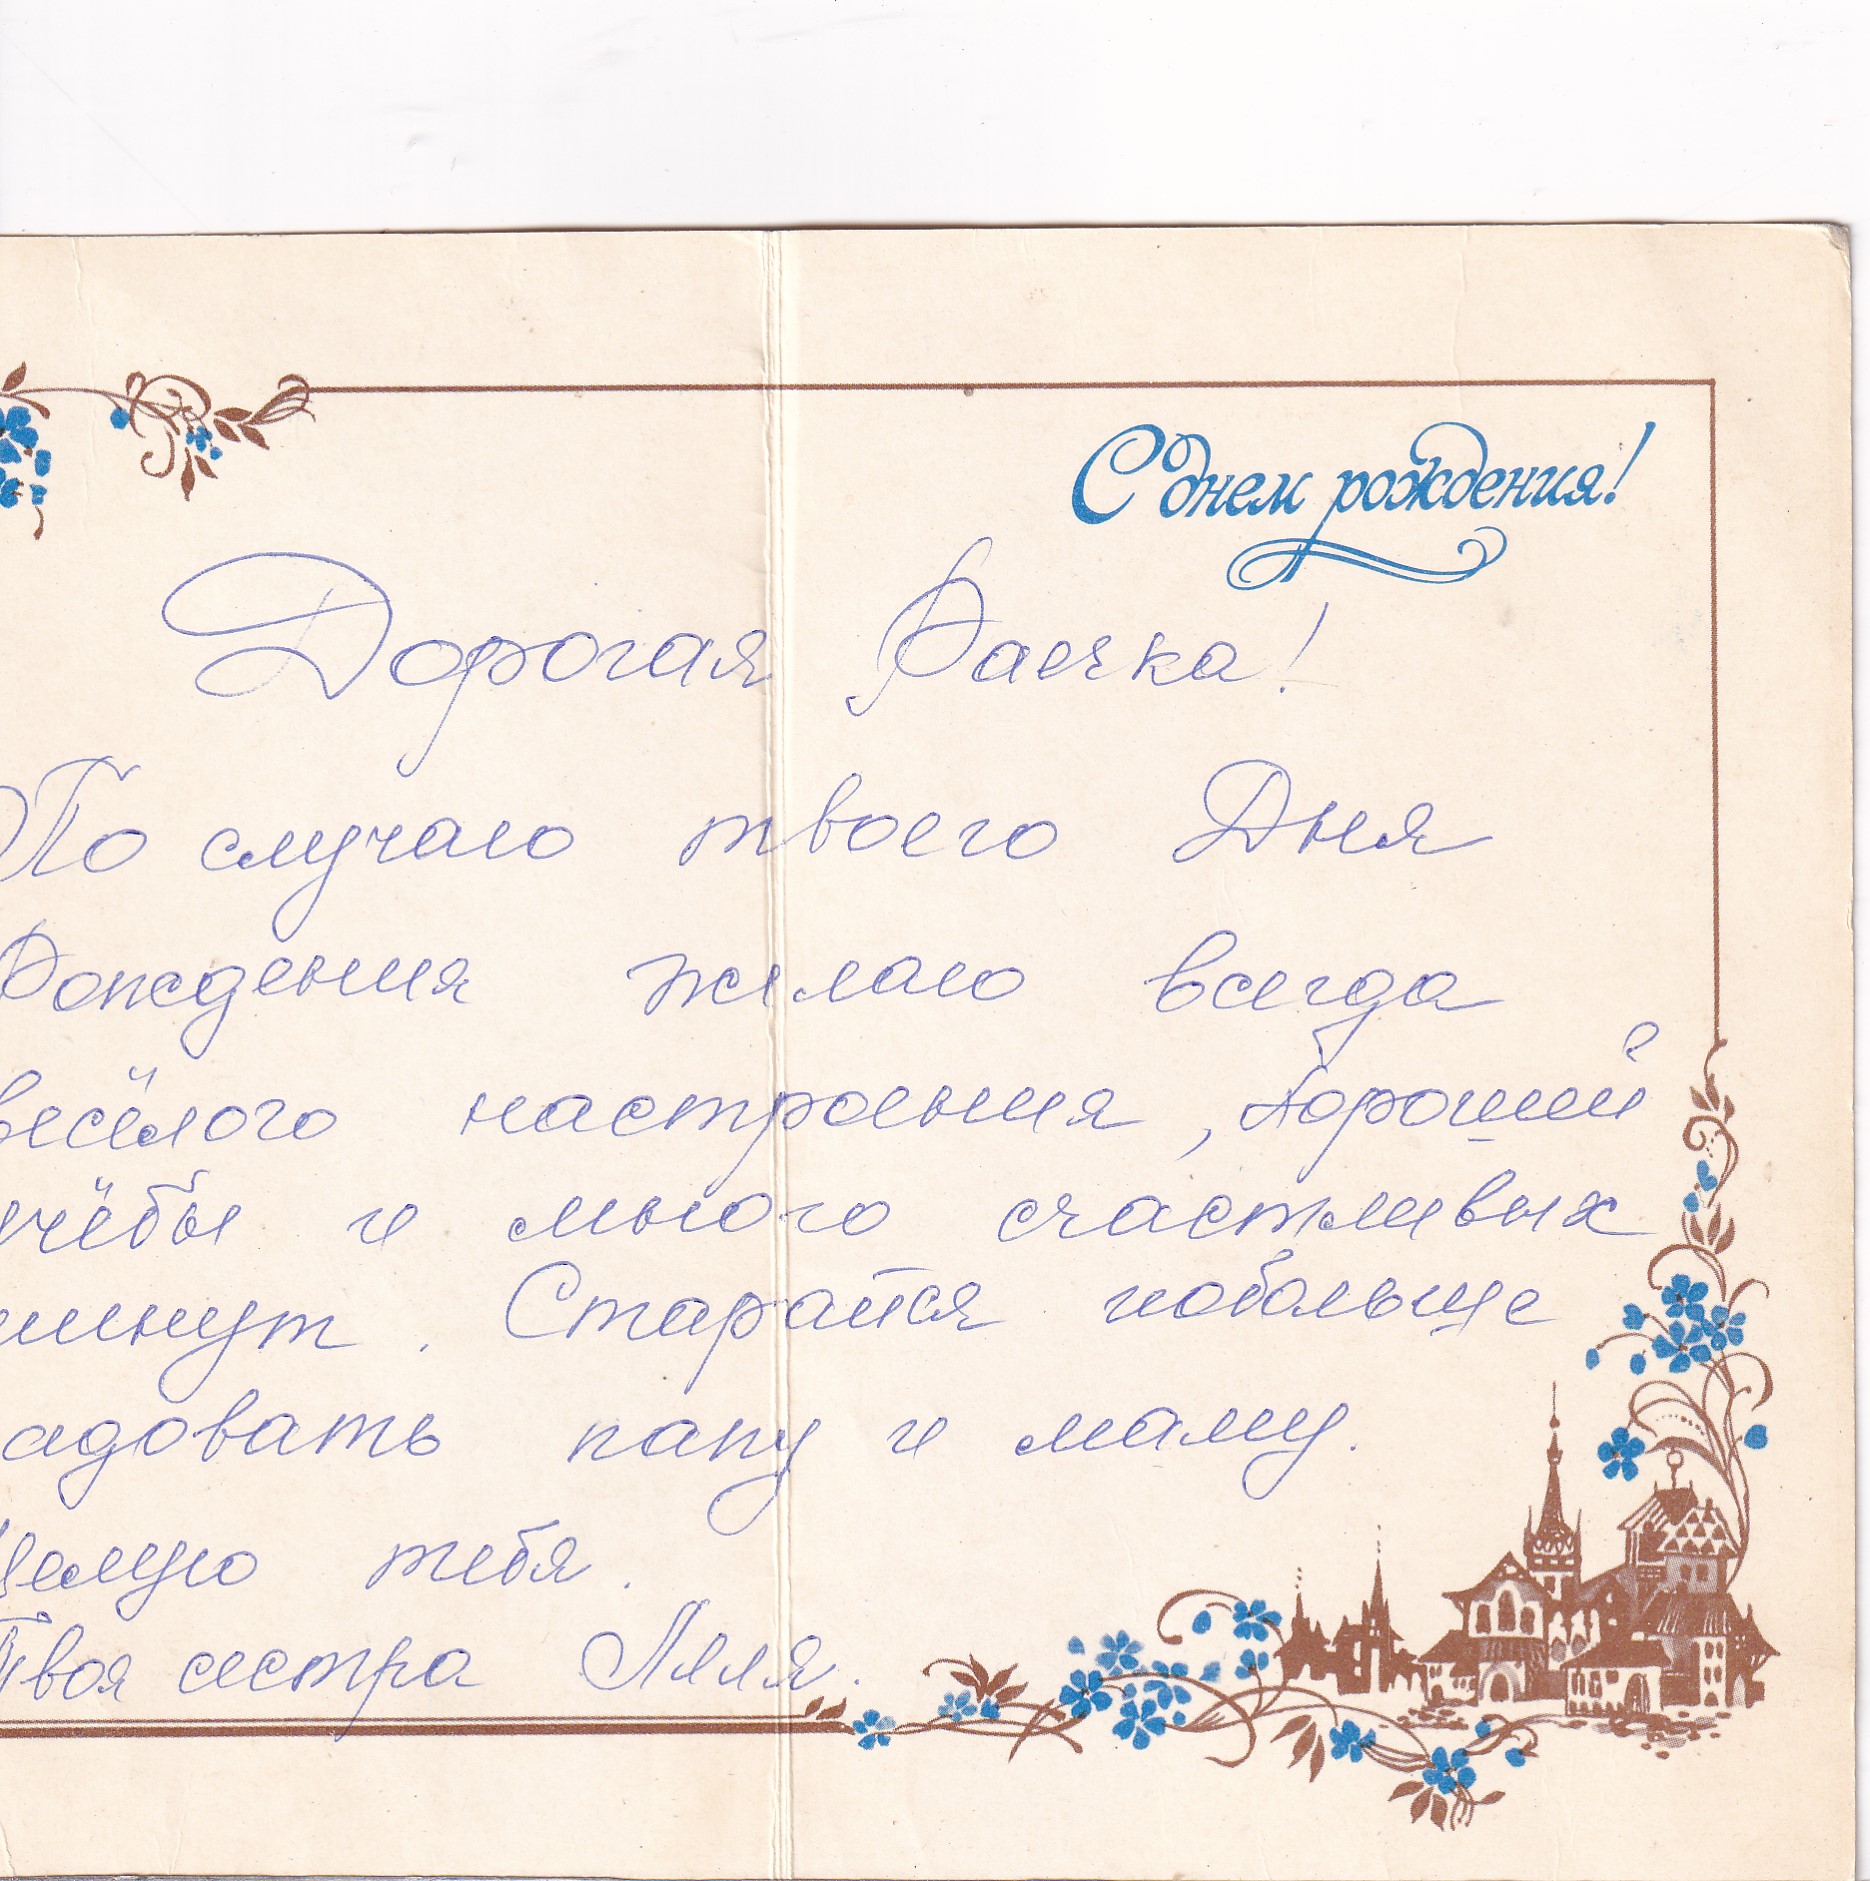 С днем рождения!
Дорогая Раечка!
По случаю твоего Дня
Рождения желаю всегда
весёлого настроения, хорошей
учёбы и много счастливых
минут. Старайся побольше
адовать папу и маму.
Целую тебя.
Твоя сестра Ляля.